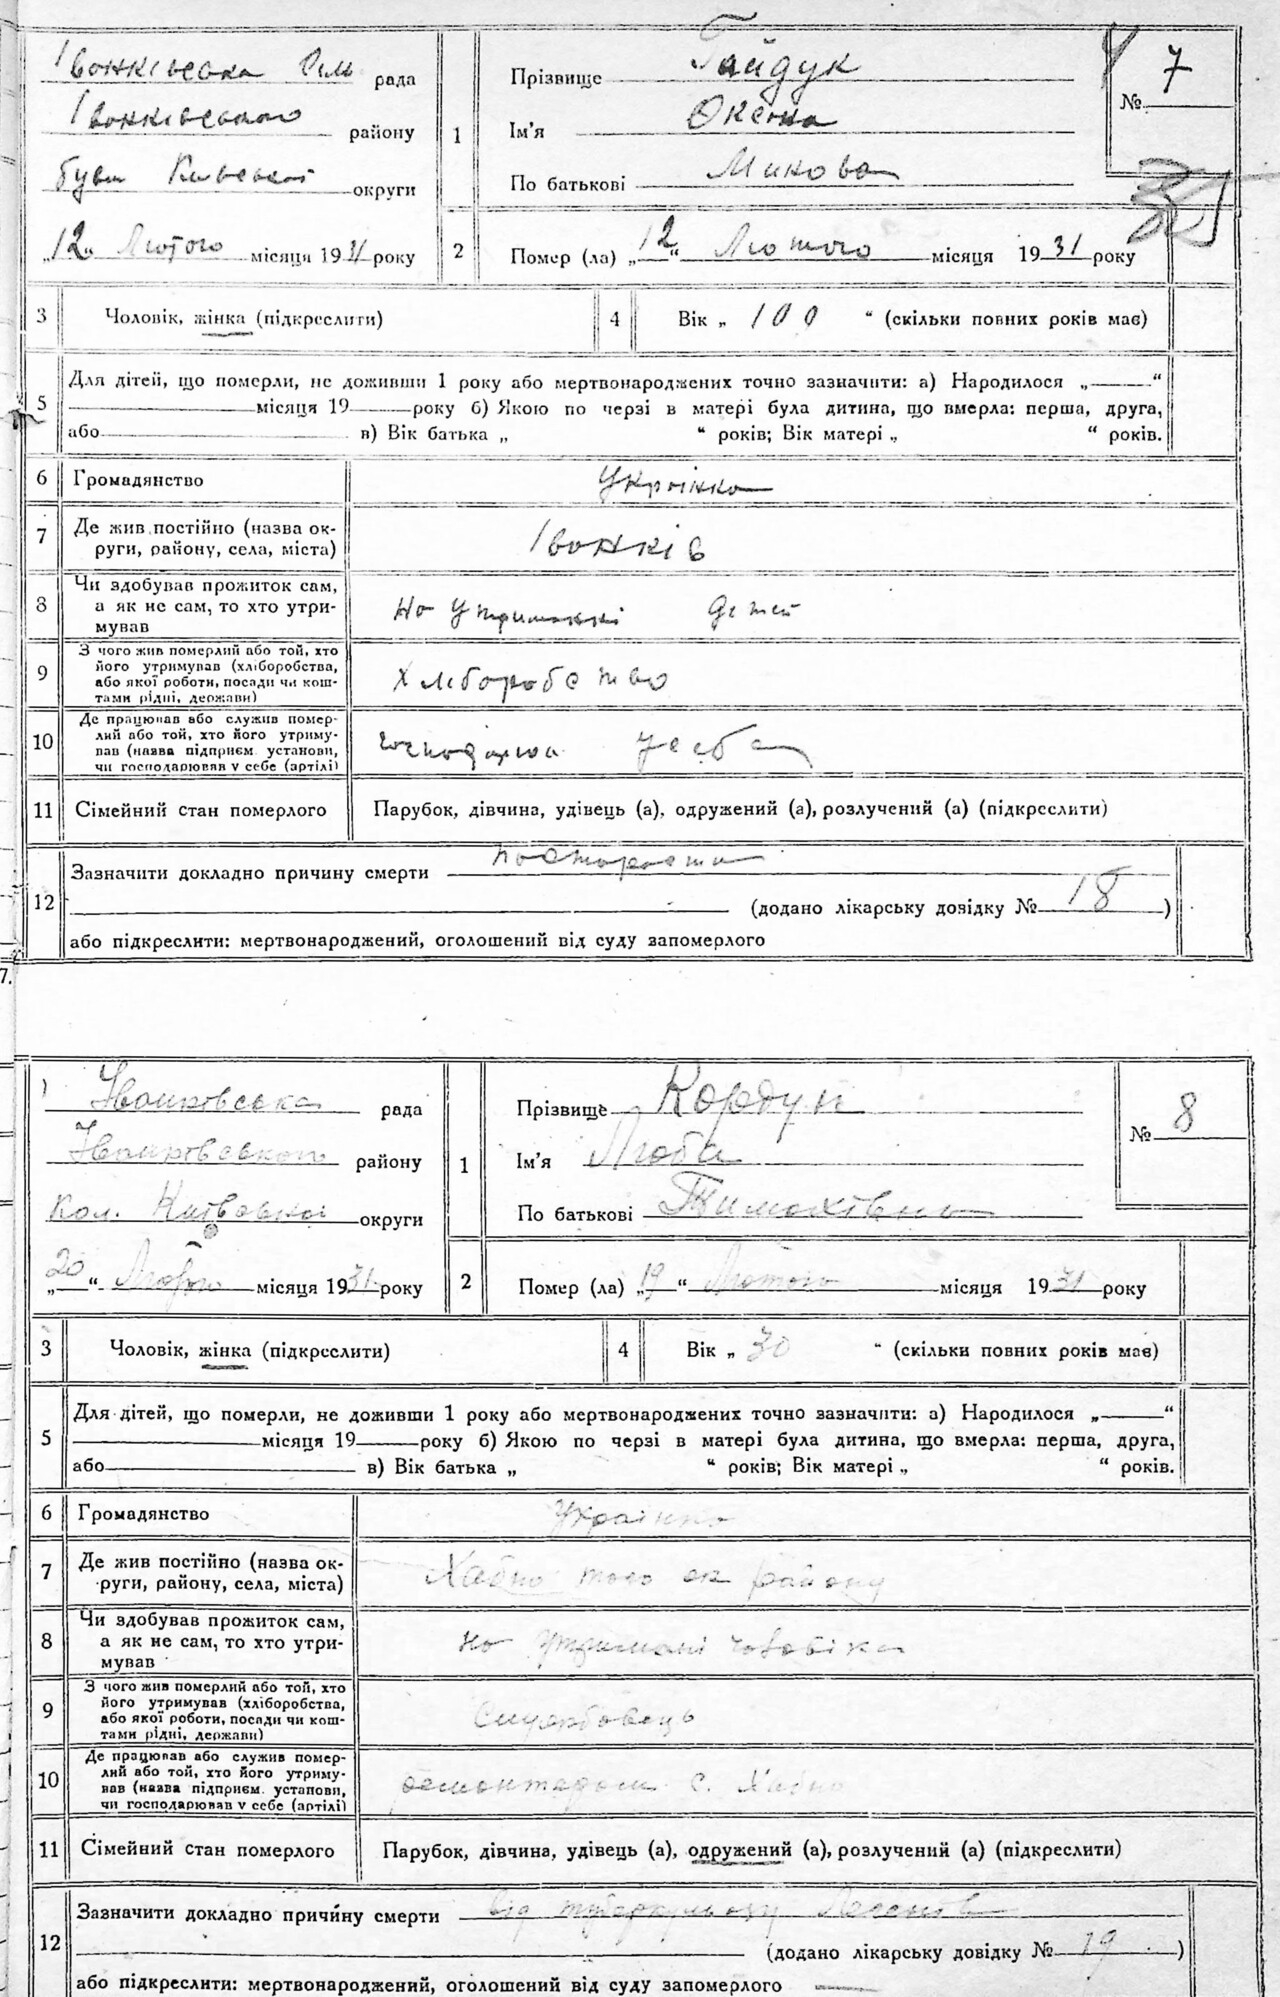 Іванківська сіль рада
Іванківського району
бувш Київської округи
„12“ Лютого місяця 1931 року
1 Прізвище Гайдук
Ім'я Оксена
По батькові
№ 7
2 Помер (ла) „12“ Лютого місяця 1931 року
3 Чоловік, жінка (підкреслити)
4 Вік „ 100 “ (скільки повних років має)
5 Для дітей, що померли, не доживши 1 року або мертвонароджених точно зазначити: а) Народилося „ “
місяця 19 року б) Якою по черзі в матері була дитина, що вмерла: перша, друга,
або в) Вік батька „ “ років; Вік матері „ “ років.
6 Громадянство Українка
7 Де жив постійно (назва ок-
руги, району, села, міста) Іванків
8 Чи здобував прожиток сам,
а як не сам, то хто утри-
мував на утриманні дітей
9 З чого жив померлий або той, хто
його утримував (хліборобства,
або якої роботи, посади чи кош-
тами рідні, держави) Хліборобство
10 Де працював або служив помер-
лий або той, хто його утриму-
вав (назва підприєм. установи,
чи господарював у себе (артілі)
11 Сімейний стан померлого Парубок, дівчина, удівець (а), одружений (а), розлучений (а) (підкреслити)
12 Зазначити докладно причину смерти по старости
(додано лікарську довідку № 18 )
або підкреслити: мертвонароджений, оголошений від суду запомерлого
7.
Іванківська рада
Іванківського району
кол. Київської округи
„20“ Лютого місяця 1931 року
1 Прізвище Кордун
Ім'я Люба
По батькові Тимохівна
№ 8
2 Помер (ла) „19“ Лютого місяця 1931 року
3 Чоловік, жінка (підкреслити)
4 Вік „ 30 “ (скільки повних років має)
5 Для дітей, що померли, не доживши 1 року або мертвонароджених точно зазначити: а) Народилося „ “
місяця 19 року б) Якою по черзі в матері була дитина, що вмерла: перша, друга,
або в) Вік батька „ “ років; Вік матері „ “ років.
6 Громадянство Українка
7 Де жив постійно (назва ок-
руги, району, села, міста) Хабно того ж району
8 Чи здобував прожиток сам,
а як не сам, то хто утри-
мував на утримані чоловіка
9 З чого жив померлий або той, хто
його утримував (хліборобства,
або якої роботи, посади чи кош-
тами рідні, держави) Службовець
10 Де працював або служив помер-
лий або той, хто його утриму-
вав (назва підприєм. установи,
чи господарював у себе (артілі) с. Хабно
11 Сімейний стан померлого Парубок, дівчина, удівець (а), одружений (а), розлучений (а) (підкреслити)
12 Зазначити докладно причину смерти від туберкульозу Легенів
(додано лікарську довідку № 19 )
або підкреслити: мертвонароджений, оголошений від суду запомерлого